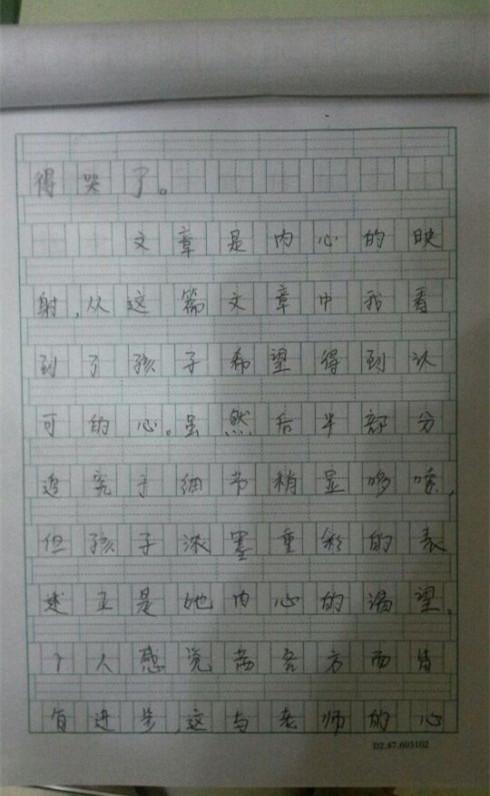 得哭了。
文章是内心的映
射,从这篇文章中我看
到了孩子希望得到认
可的心。虽然后半部分
追究于细节稍显啰嗦,
但孩子浓墨重彩的表
述正是她内心的渴望。
个人感觉各方面皆
有进步,这与老师的心
D2.47.603102